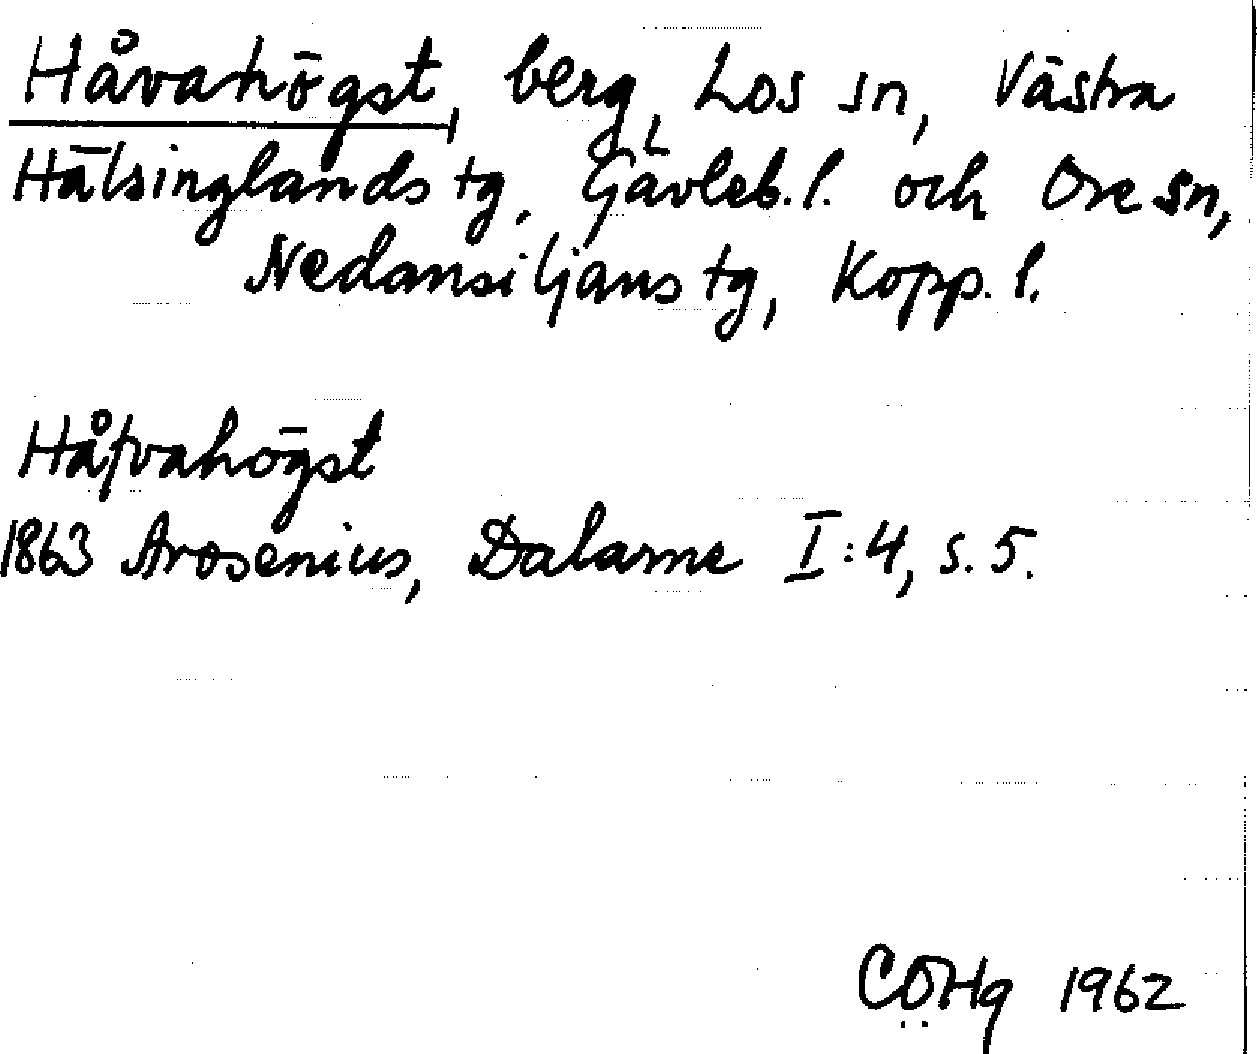 Håvahögst, berg, Los sn, Västra
Hälsinglands tg, Gävleb. l. och Ore sn,
Nedansiljans tg, Kopp. l.
Håfvahögst
1863 Arosenius, Dalarne I:4, s. 5.
CÖHg 1962